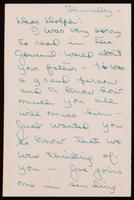 Thursday -
Dear Ralph:
I was very sorry
to read in the
Journal World about
your father - He was
a good person
and I know how
much you all
will miss him -
Just wanted you
to know that we
were thinking of
you - Joe joins
me in sending